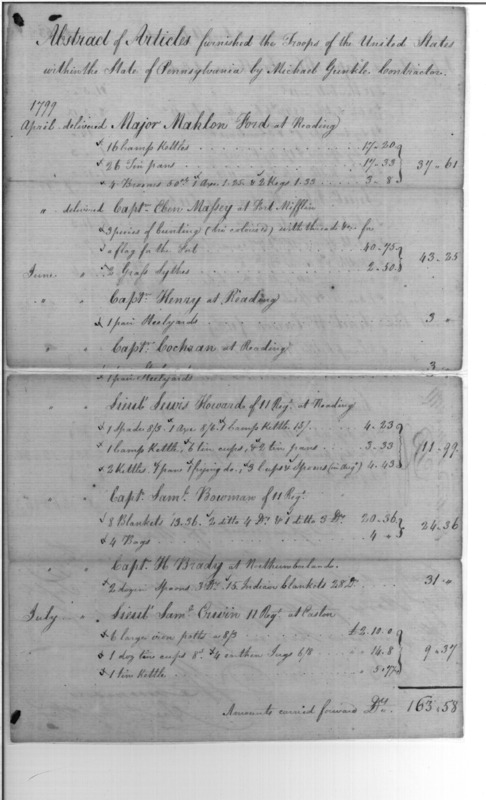 Abstract of Articles furnished the Troops of the United States
within the State of Pennsylvania by Michael Gunkle Contractor.
1799
April delivered Major Mahlon Ford at Reading
16 Camp Kettles 17-20
26 Tin pans 17-33 37-61
4 Brooms 50cts 1 Axe 1.25. & 2 Kegs 1.33 3-8
" delivered Capt. Eben Massey at Fort Mifflin
3 pieces of bunting ( coloured) with thread &c. for
a flag for the Fort 40-75 43-25
June " 2 Grass Sythes 2-50
" " Capt. Henry at Reading
1 pair Steelyards 3 "
" " Capt. Cochran at Reading
1 pair Steelyards 3
" " Lieut. Lewis Howard of 11 Regt. at Reading
1 Spade 8/3. 1 Axe 8/6. 1 Camp Kettle 15/. 4-23
1 Camp Kettle, 6 tin cups, & 2 tin pans 3-33 11-99
2 Kettles. 7 pans 1 frying do., 3 Cups & Spoons (in Augt) 4-43
" " Capt. Saml. Bowman of 11 Regt.
8 Blankets 13.36. 2 ditto 4 Drs. & 1 ditto 3 Drs. 20-36 24-36
4 Bags 4 "
" " Capt. H. Brady at Northumberland.
2 dozen Spoons 3 Drs. 15 Indian blankets 28 Drs 31 "
July " Lieut. Saml. Erwin 11 Regt. at Easton
6 large iron potts @ 8/3 £2.10.0
1 doz tin cups 8/. & 4 earthen Jugs 6/8 " 14.8 9-37
1 tin Kettle " 5-7½
Amounts carried forward Drs. 163-58